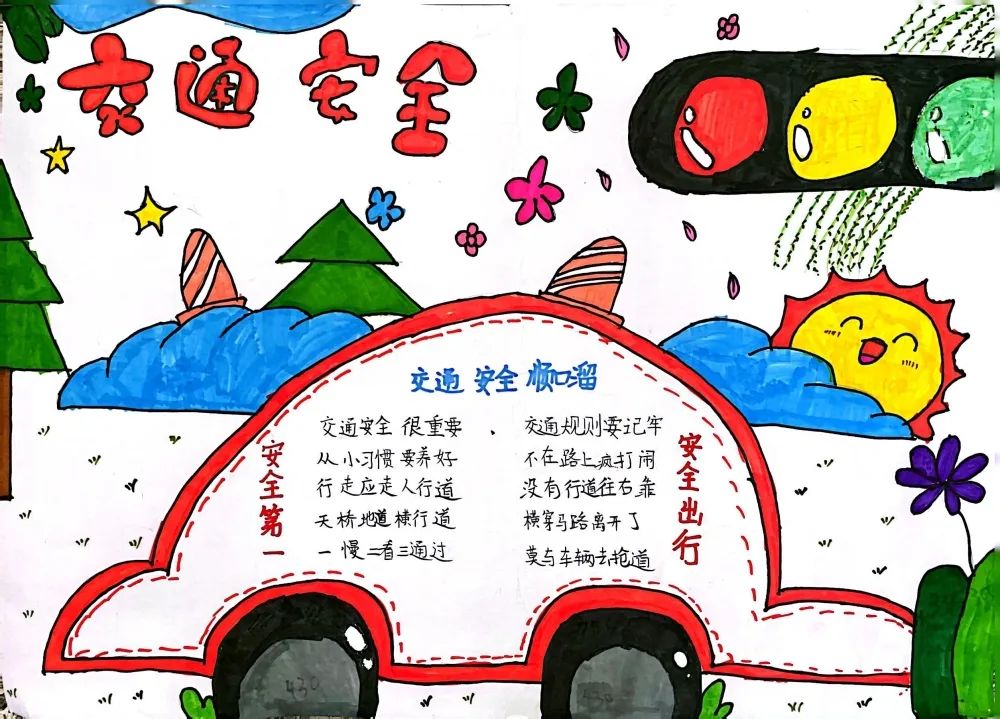 交通安全
交通安全顺口溜
安全第一
交通安全很重要、
从小习惯要养好
行走应走人行道
天桥地道横行道
一慢二看三通过
交通规则要记牢
不在路上疯打闹
没有行道往右靠
横穿马路离开了
莫与车辆去抢道
安全出行
430
430